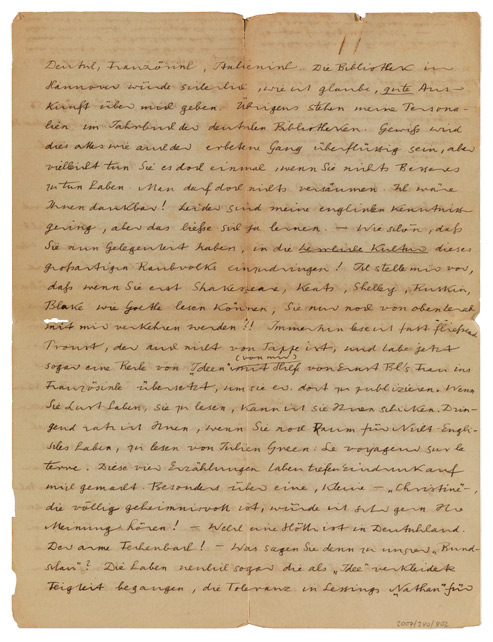 Deutsch, Französisch, Italienisch. Die Bibliothek in
Hannover würde sicherlich, wie ich glaube, gute Aus-
kunft über mich geben. Übrigens stehen meine Persona-
lien im Jahrbuch der deutschen Bibliotheken. Gewiß wird
dies alles wie auch der erbetene Gang überflüssig sein, aber
vielleicht tun Sie es doch einmal, wenn Sie nichts Besseres
zu tun haben. Man darf doch nichts versäumen. Ich wäre
Ihnen dankbar! Leider sind meine englischen Kenntnisse
gering, aber das ließe sich ja lernen. — Wie schön, daß
Sie nun Gelegenheit haben, in die Kultur dieses
großartigen Raubvolks einzudringen! Ich stelle mir vor,
daß wenn Sie erst Shakespeare, Keats, Shelley, Ruskin,
Blake wie Goethe lesen können, Sie nur noch von oben herab
mit mir verkehren werden?! Immerhin lese ich fast fließend
Proust, der auch nicht von Pappe ist, und habe jetzt
sogar eine Reihe von "Ideen" (von mir) mit Hilfe von Ernst Bl's Frau ins
Französische übersetzt, um sie ev. dort zu publizieren. Wenn
Sie Lust haben, sie zu lesen, kann ich sie Ihnen schicken. Drin-
gend rate ich Ihnen, wenn Sie noch Raum für Nicht-Engli-
sches haben, zu lesen von Julien Green: Le voyageur sur la
terre. Diese vier Erzählungen haben tiefen Eindruck auf
mich gemacht. Besonders über eine, kleine — "Christine" —,
die völlig geheimnisvoll ist, würde ich sehr gern Ihre
Meinung hören! — Welch eine Hölle ist in Deutschland.
Der arme — Was sagen Sie denn zu unsrer "Rund-
schau"? Die haben neulich sogar die als "Idee" verkleidete
Feigheit begangen, die Toleranz in Lessings "Nathan" für
2007/200/802